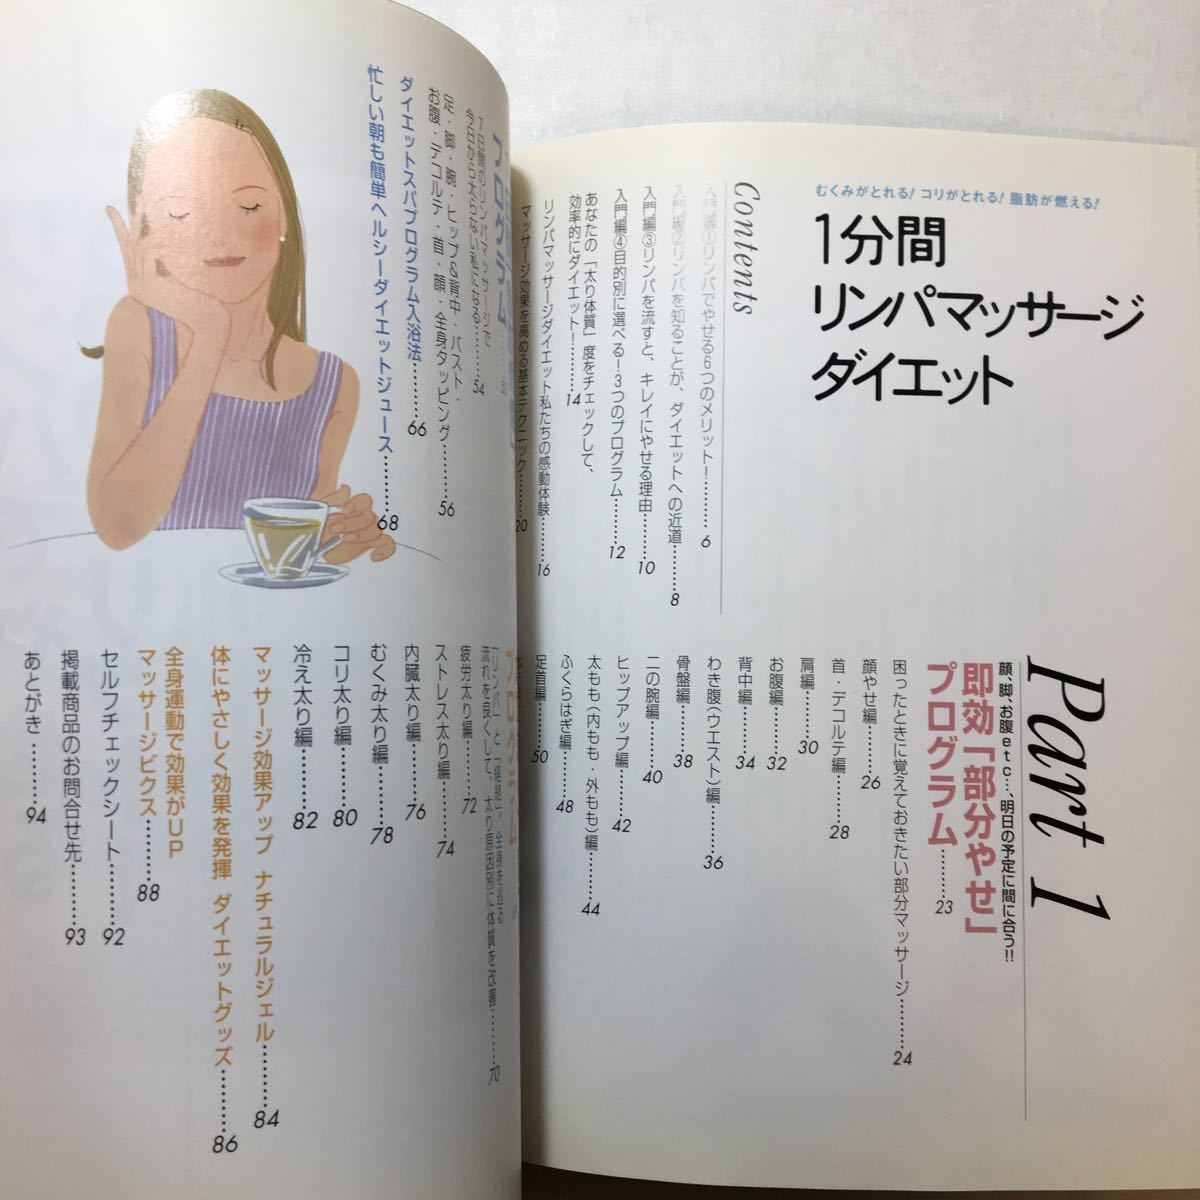 むくみがとれる! コリがとれる! 脂肪が燃える!
1分間
リンパマッサージ
ダイエット
Contents
入門編①リンパでやせる6つのメリット!………6
入門編②リンパを知ることが、ダイエットへの近道………8
入門編③リンパを流すと、キレイにやせる理由………10
入門編④目的別に選べる!3つのプログラム………12
あなたの「太り体質」度をチェックして、
効率的にダイエット!………14
リンパマッサージダイエット私たちの感動体験………16
マッサージ効果を高める基本テクニック………20
Part 1
顔、脚、お腹etc…、明日の予定に間に合う!!
即効「部分やせ」
プログラム………23
困ったときに覚えておきたい部分マッサージ………24
顔やせ編………26
首・デコルテ編………28
肩編………30
お腹編………32
背中編………34
わき腹(ウエスト)編………36
骨盤編………38
二の腕編………40
ヒップアップ編………42
太もも(内もも・外もも)編………44
ふくらはぎ編………48
足首編………50
プログラム
1日間のリンパマッサージで
今日から太らない私になる………54
足・脚・腕・ヒップ&背中・バスト・
お腹・デコルテ・首・顔・全身タッピング………56
ダイエットスパプログラム入浴法………66
忙しい朝も簡単ヘルシーダイエットジュース………68
プログラム
「リンパ」と「経絡」。全身を巡る
流れを良くして、太り原因別に体質を改善………70
疲労太り編………72
ストレス太り編………74
内臓太り編………76
むくみ太り編………78
コリ太り編………80
冷え太り編………82
マッサージ効果アップ ナチュラルジェル………84
体にやさしく効果を発揮 ダイエットグッズ………86
全身運動で効果がUP
マッサージビクス………88
セルフチェックシート………92
掲載商品のお問合せ先………93
あとがき………94